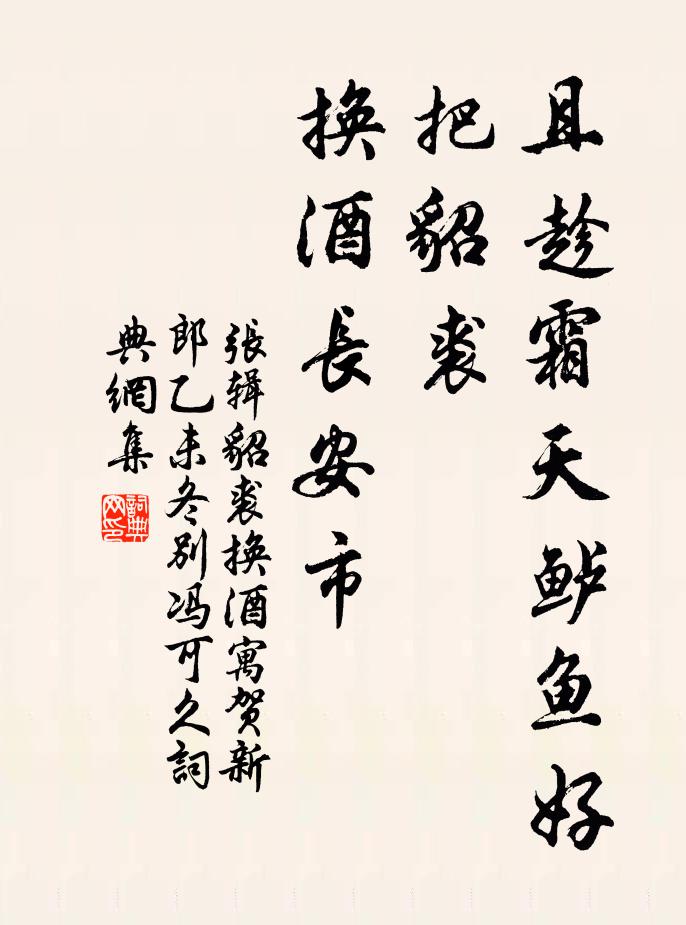 且趁霜天鲈鱼好
把貂裘
換酒長安市
張辑貂裘換酒寓贺新
郎乙未冬别冯可久詞
典網集
詞典
网印